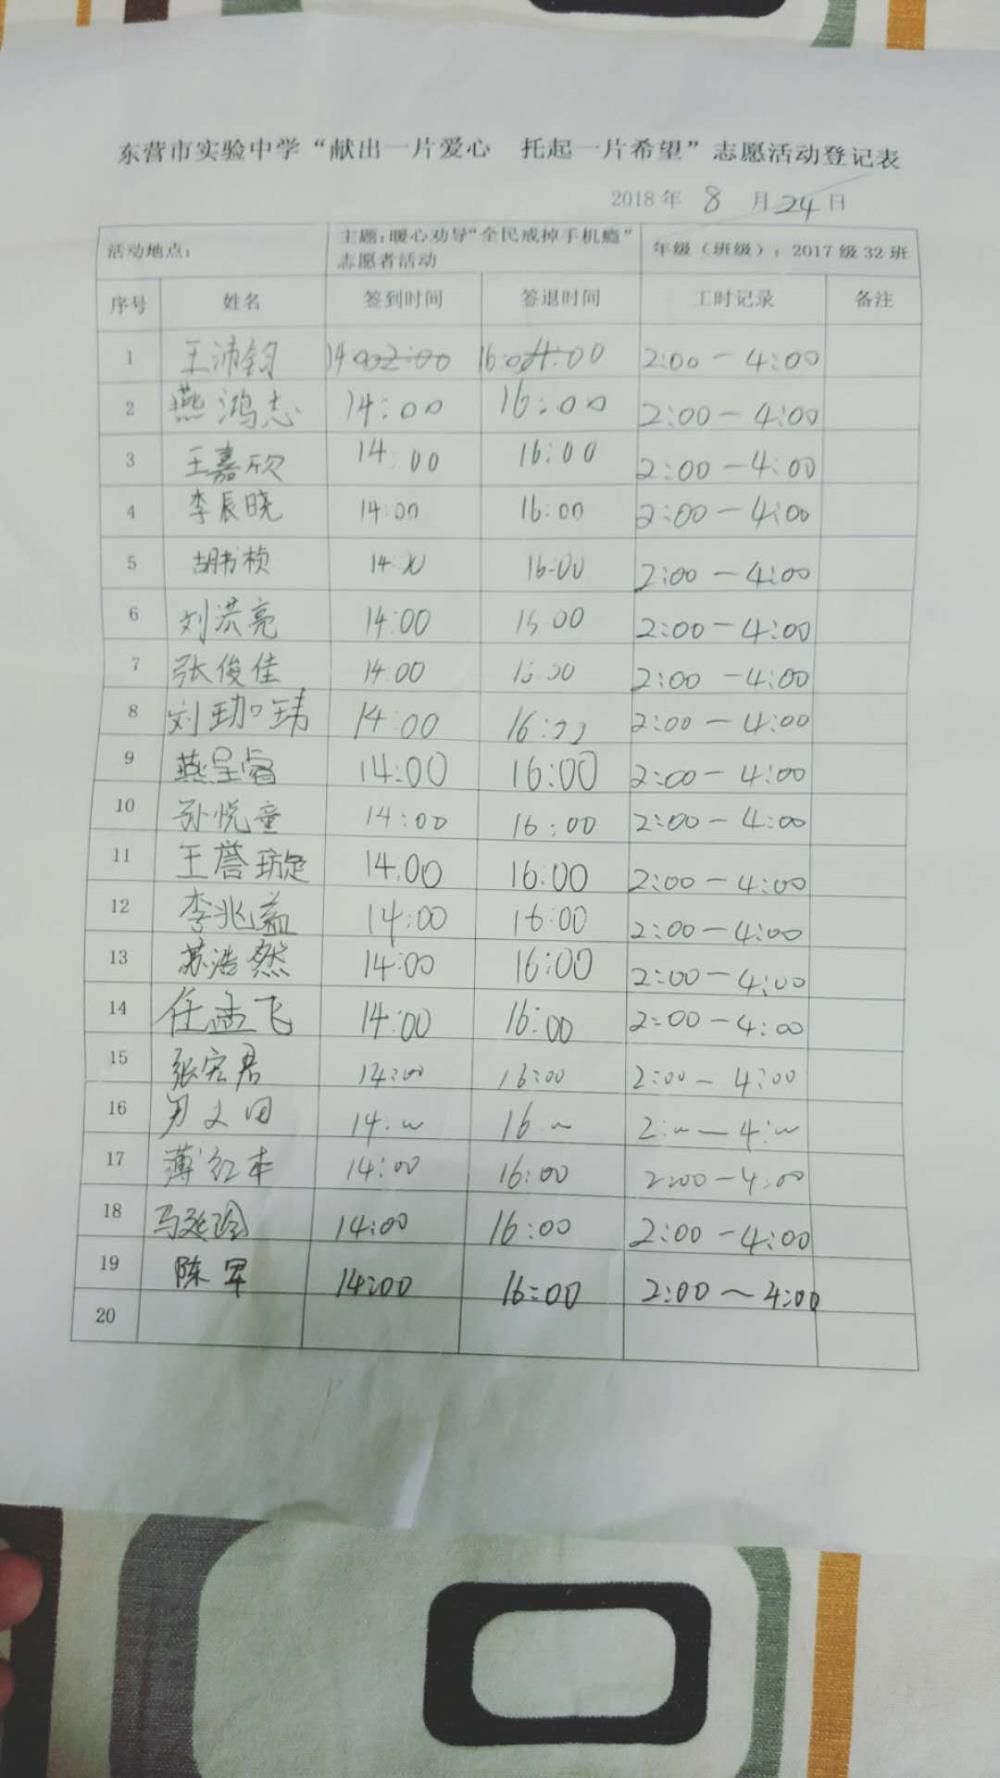 东营市实验中学“献出一片爱心 托起一片希望”志愿活动登记表
2018年 8 月 24 日
活动地点： 主题：暖心劝导“全民戒掉手机瘾”志愿者活动 年级（班级）：2017级32班
序号 姓名 签到时间 签退时间 工时记录 备注
1 王沛钧 14:00 16:00 2:00-4:00
2 燕鸿志 14:00 16:00 2:00-4:00
3 王嘉欣 14:00 16:00 2:00-4:00
4 李辰晓 14:00 16:00 2:00-4:00
5 胡书桢 14:00 16:00 2:00-4:00
6 刘洪亮 14:00 16:00 2:00-4:00
7 张俊佳 14:00 16:00 2:00-4:00
8 刘珈玮 14:00 16:00 2:00-4:00
9 燕呈睿 14:00 16:00 2:00-4:00
10 孙悦童 14:00 16:00 2:00-4:00
11 王誉璇 14:00 16:00 2:00-4:00
12 李兆益 14:00 16:00 2:00-4:00
13 苏浩然 14:00 16:00 2:00-4:00
14 任孟飞 14:00 16:00 2:00-4:00
15 张宏君 14:00 16:00 2:00-4:00
16 14:00 16:00 2:00-4:00
17 薄红本 14:00 16:00 2:00-4:00
18 14:00 16:00 2:00-4:00
19 陈军 14:00 16:00 2:00~4:00
20